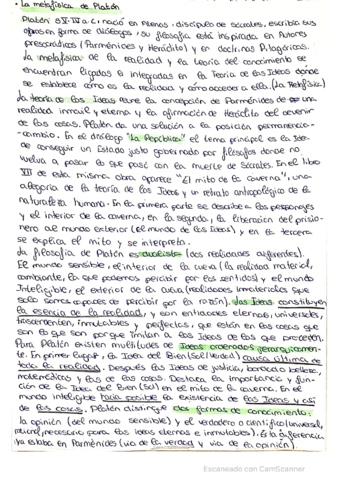 • La metafísica de Platón
Platón s.V-IV a.C. nació en Atenas, discípulo de Sócrates, escribía sus
obras en forma de diálogos, su filosofía está inspirada en autores
presocráticos (Parménides y Heráclito) y en doctrinas Pitagóricas.
La metafísica de la realidad y la teoría del conocimiento se
encuentran ligadas e integradas en la Teoría de las Ideas donde
se establece cómo es la realidad y cómo acceder a ella. (La Metafísica)
La teoría de las Ideas une la concepción de Parménides de una
realidad inmóvil y eterna y la afirmación de Heráclito del devenir
de las cosas. Platón da una solución a la posición permanencia-
-cambio. En el diálogo "La República" el tema principal es la idea
de conseguir un Estado justo gobernado por filósofos donde no
vuelva a pasar lo que pasó con la muerte de Sócrates. En el libro
VII de esta misma obra aparece "El mito de la caverna", una
alegoría de la teoría de las Ideas y un retrato antropológico de la
naturaleza humana. En la primera parte se describe a los personajes
y el interior de la caverna, en la segunda, la liberación del prisio-
nero al mundo exterior (el mundo de las Ideas), y en la tercera
se explica el mito y se interpreta.
La filosofía de Platón es dualista (dos realidades diferentes).
El mundo sensible, el interior de la cueva (la realidad material,
cambiante, la que podemos percibir por los sentidos) y el mundo
Inteligible, el exterior de la cueva (realidades inmateriales que
solo somos capaces de percibir por la razón). Las Ideas constituyen
la esencia de la realidad, y son entidades eternas, universales,
trascendentes, inmutables y perfectas, que están en las cosas que
son lo que son porque imitan a las Ideas de las que proceden.
Para Platón existen multitudes de Ideas ordenadas jerárquicamen-
te. En primer lugar, la Idea del Bien (Sol/verdad) causa última de
toda la realidad. Después las Ideas de justicia, bondad o belleza,
matemáticas y las de las cosas. Destaca la importancia y fun-
ción de la Idea del Bien (sol) en el mito de la caverna. En el
mundo inteligible hacía posible la existencia de las Ideas y así
de las cosas. Platón distingue dos formas de conocimiento:
la opinión (del mundo sensible) y el verdadero o científico (universal,
necesario para las ideas eternas e inmutables). Esta diferencia
ya estaba en Parménides (vía de la verdad y vía de la opinión).
Escaneado con CamScanner